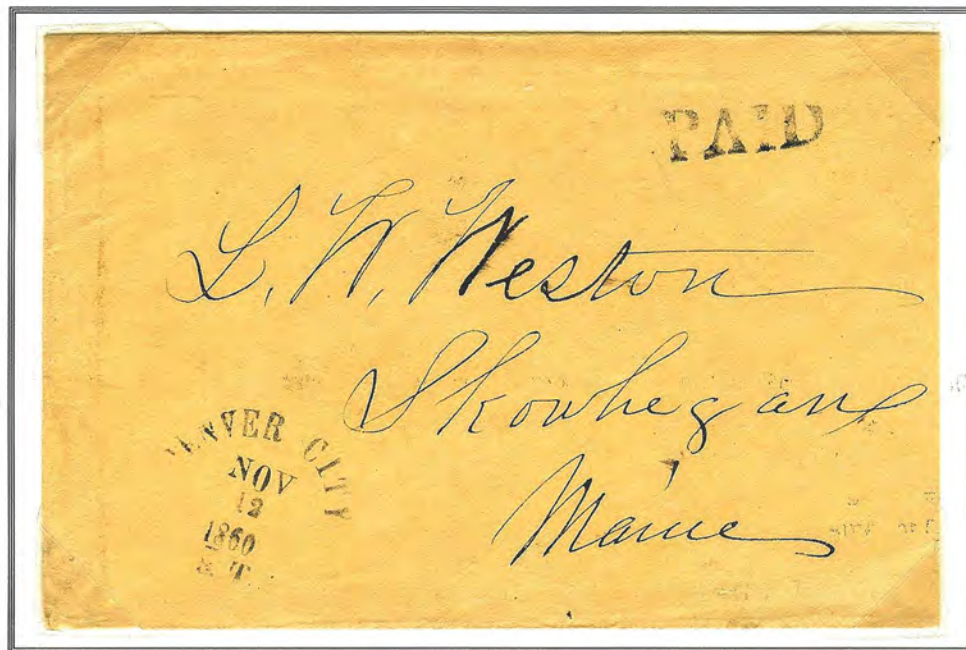 PAID
L. W. Weston
Skowhegan
Maine
DENVER CITY
NOV
12
1860
K.T.